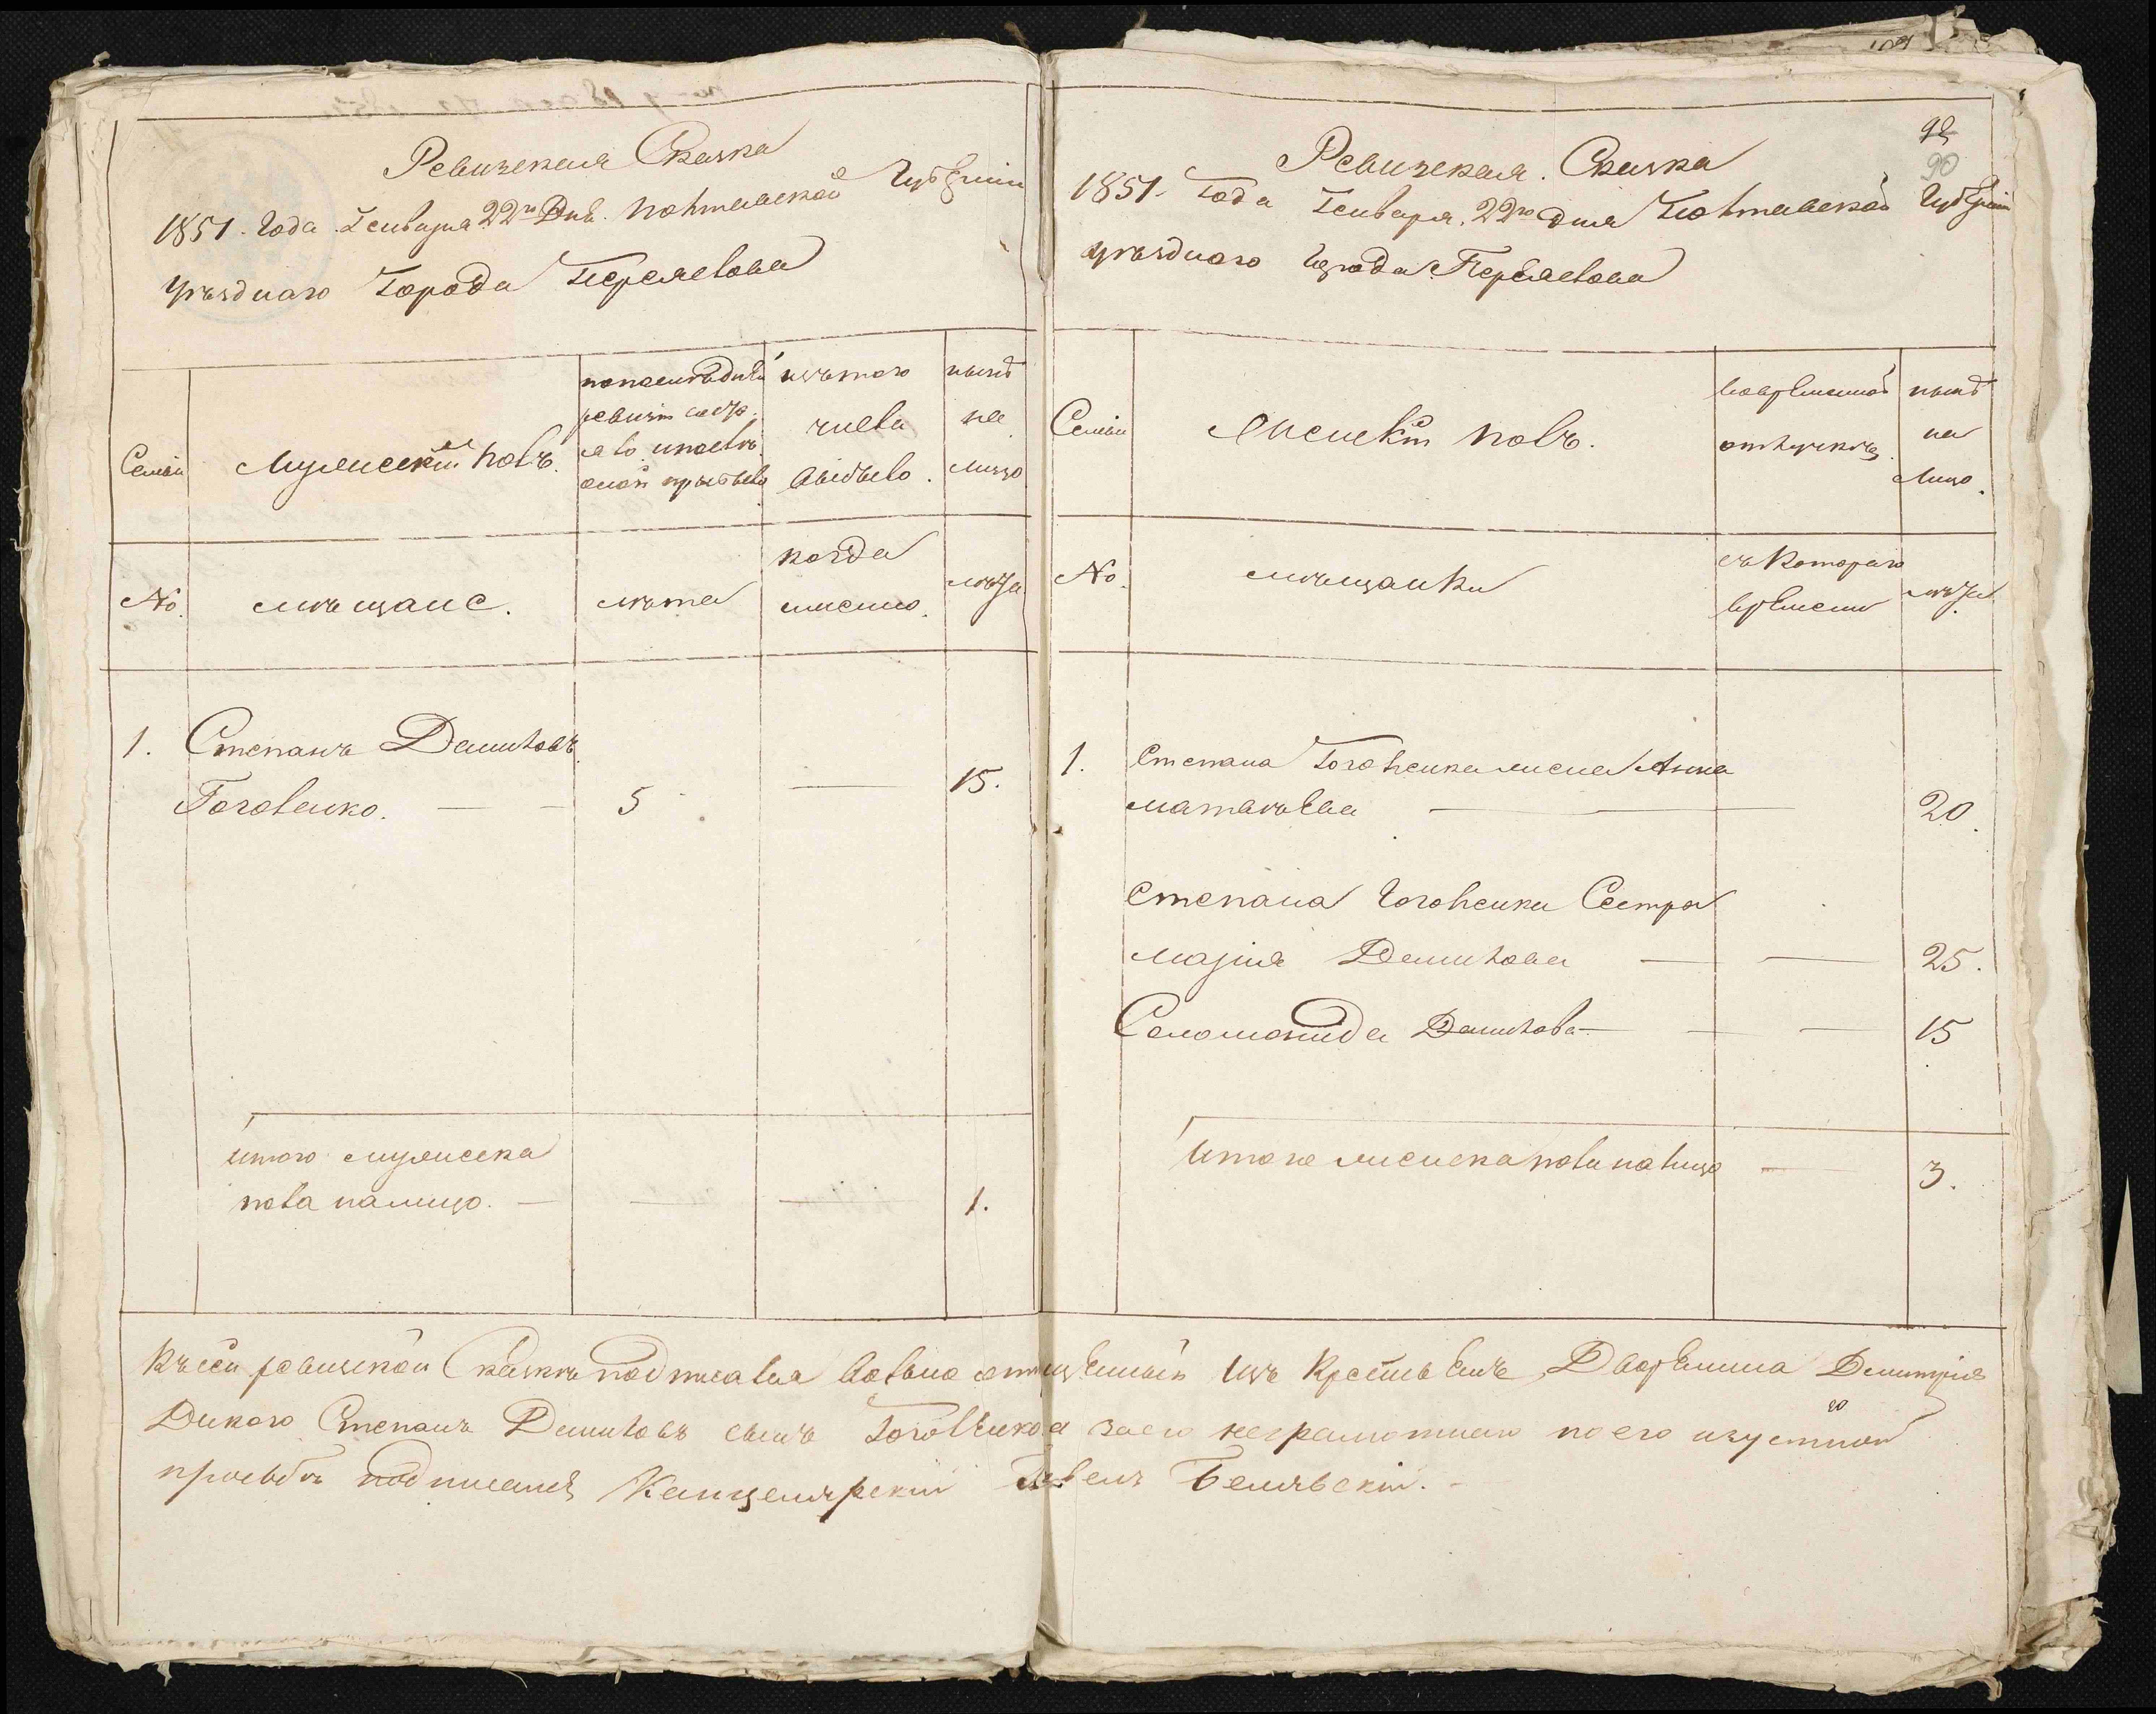 Ревизская Сказка
1851. Года Генваря 22го Дня. Полтавской Губернiи
уѣзднаго Города Переяслова
Семьи
Мужескiй полъ.
по последней ревизiи состояло и после оной прибыло
изъ того числа выбыло.
нынѣ на лицо
No.
мѣщане.
лѣта
когда именно.
лѣта
1. Степанъ Даниловъ
Гоголенко. — — 5 — 15.
итого мужеска
пола налицо. — — — 1.
98
90
Ревизская. Сказка
1851. Года Генваря. 22го дня Полтавской Губернiи
уѣзднаго города Переяслова
Семьи
Женскiй полъ.
во временной отлучкѣ.
нынѣ на лицо.
No.
мѣщанки
съ котораго времени
лѣта.
1. Степана Гоголенка жена Анна
— 20.
Степана Гоголенка Сестры
Марiя Данилова — — 25.
Соломонида Данилова — — — 15
Итого женска пола на лицо — 3.
Къ сей ревизской Сказкѣ подписался вольно отпущенный изъ Крестьянъ Дворянина Димитрiя
Дикого Степанъ Даниловъ сынъ Гоголенко а за его неграмотного по его изустной
прозьбѣ подписалъ Канцелярскiй Белявскiй. -